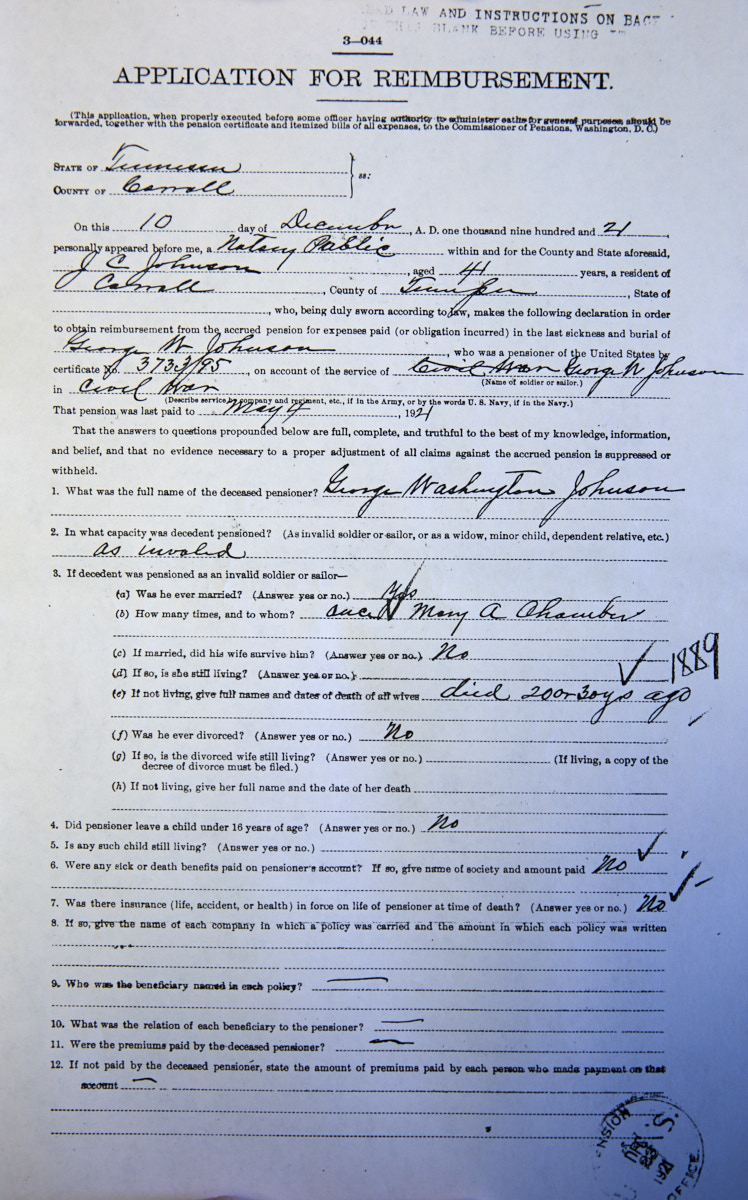 READ LAW AND INSTRUCTIONS ON BACK
OF THIS BLANK BEFORE USING
3—044
APPLICATION FOR REIMBURSEMENT.
(This application, when properly executed before some officer having authority to administer oaths for general purposes, should be
forwarded, together with the pension certificate and itemized bills of all expenses, to the Commissioner of Pensions, Washington, D. C.)
STATE OF Tennessee
COUNTY OF Carroll
ss:
On this 10 day of December, A. D. one thousand nine hundred and 21,
personally appeared before me, a Notary Public within and for the County and State aforesaid,
J C Johnson, aged 41 years, a resident of
Carroll, County of, State of
, who, being duly sworn according to law, makes the following declaration in order
to obtain reimbursement from the accrued pension for expenses paid (or obligation incurred) in the last sickness and burial of
George W Johnson, who was a pensioner of the United States by
certificate No. 373395, on account of the service of Civil War George W Johnson
(Name of soldier or sailor.)
in Civil War
(Describe service by company and regiment, etc., if in the Army, or by the words U. S. Navy, if in the Navy.)
That pension was last paid to May 4, 1921
That the answers to questions propounded below are full, complete, and truthful to the best of my knowledge, information,
and belief, and that no evidence necessary to a proper adjustment of all claims against the accrued pension is suppressed or
withheld.
1. What was the full name of the deceased pensioner? George Washington Johnson
2. In what capacity was decedent pensioned? (As invalid soldier or sailor, or as a widow, minor child, dependent relative, etc.)
as invaled
3. If decedent was pensioned as an invalid soldier or sailor—
(a) Was he ever married? (Answer yes or no.) Yes
(b) How many times, and to whom? once Mary A Chamber
(c) If married, did his wife survive him? (Answer yes or no.) No
(d) If so, is she still living? (Answer yes or no.)
1889
(e) If not living, give full names and dates of death of all wives died 20 or 30 ys ago
(f) Was he ever divorced? (Answer yes or no.) No
(g) If so, is the divorced wife still living? (Answer yes or no.) (If living, a copy of the
decree of divorce must be filed.)
(h) If not living, give her full name and the date of her death
4. Did pensioner leave a child under 16 years of age? (Answer yes or no.) No
5. Is any such child still living? (Answer yes or no.)
6. Were any sick or death benefits paid on pensioner's account? If so, give name of society and amount paid No
7. Was there insurance (life, accident, or health) in force on life of pensioner at time of death? (Answer yes or no.) No
8. If so, give the name of each company in which a policy was carried and the amount in which each policy was written
9. Who was the beneficiary named in each policy?
10. What was the relation of each beneficiary to the pensioner?
11. Were the premiums paid by the deceased pensioner?
12. If not paid by the deceased pensioner, state the amount of premiums paid by each person who made payment on that
account
U. S. PENSION OFFICE
1921